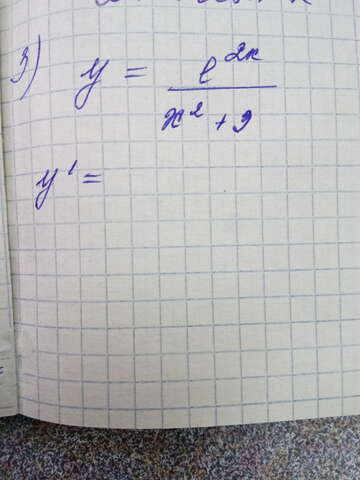 3) y = e^2x / x^2 + 9
y' =